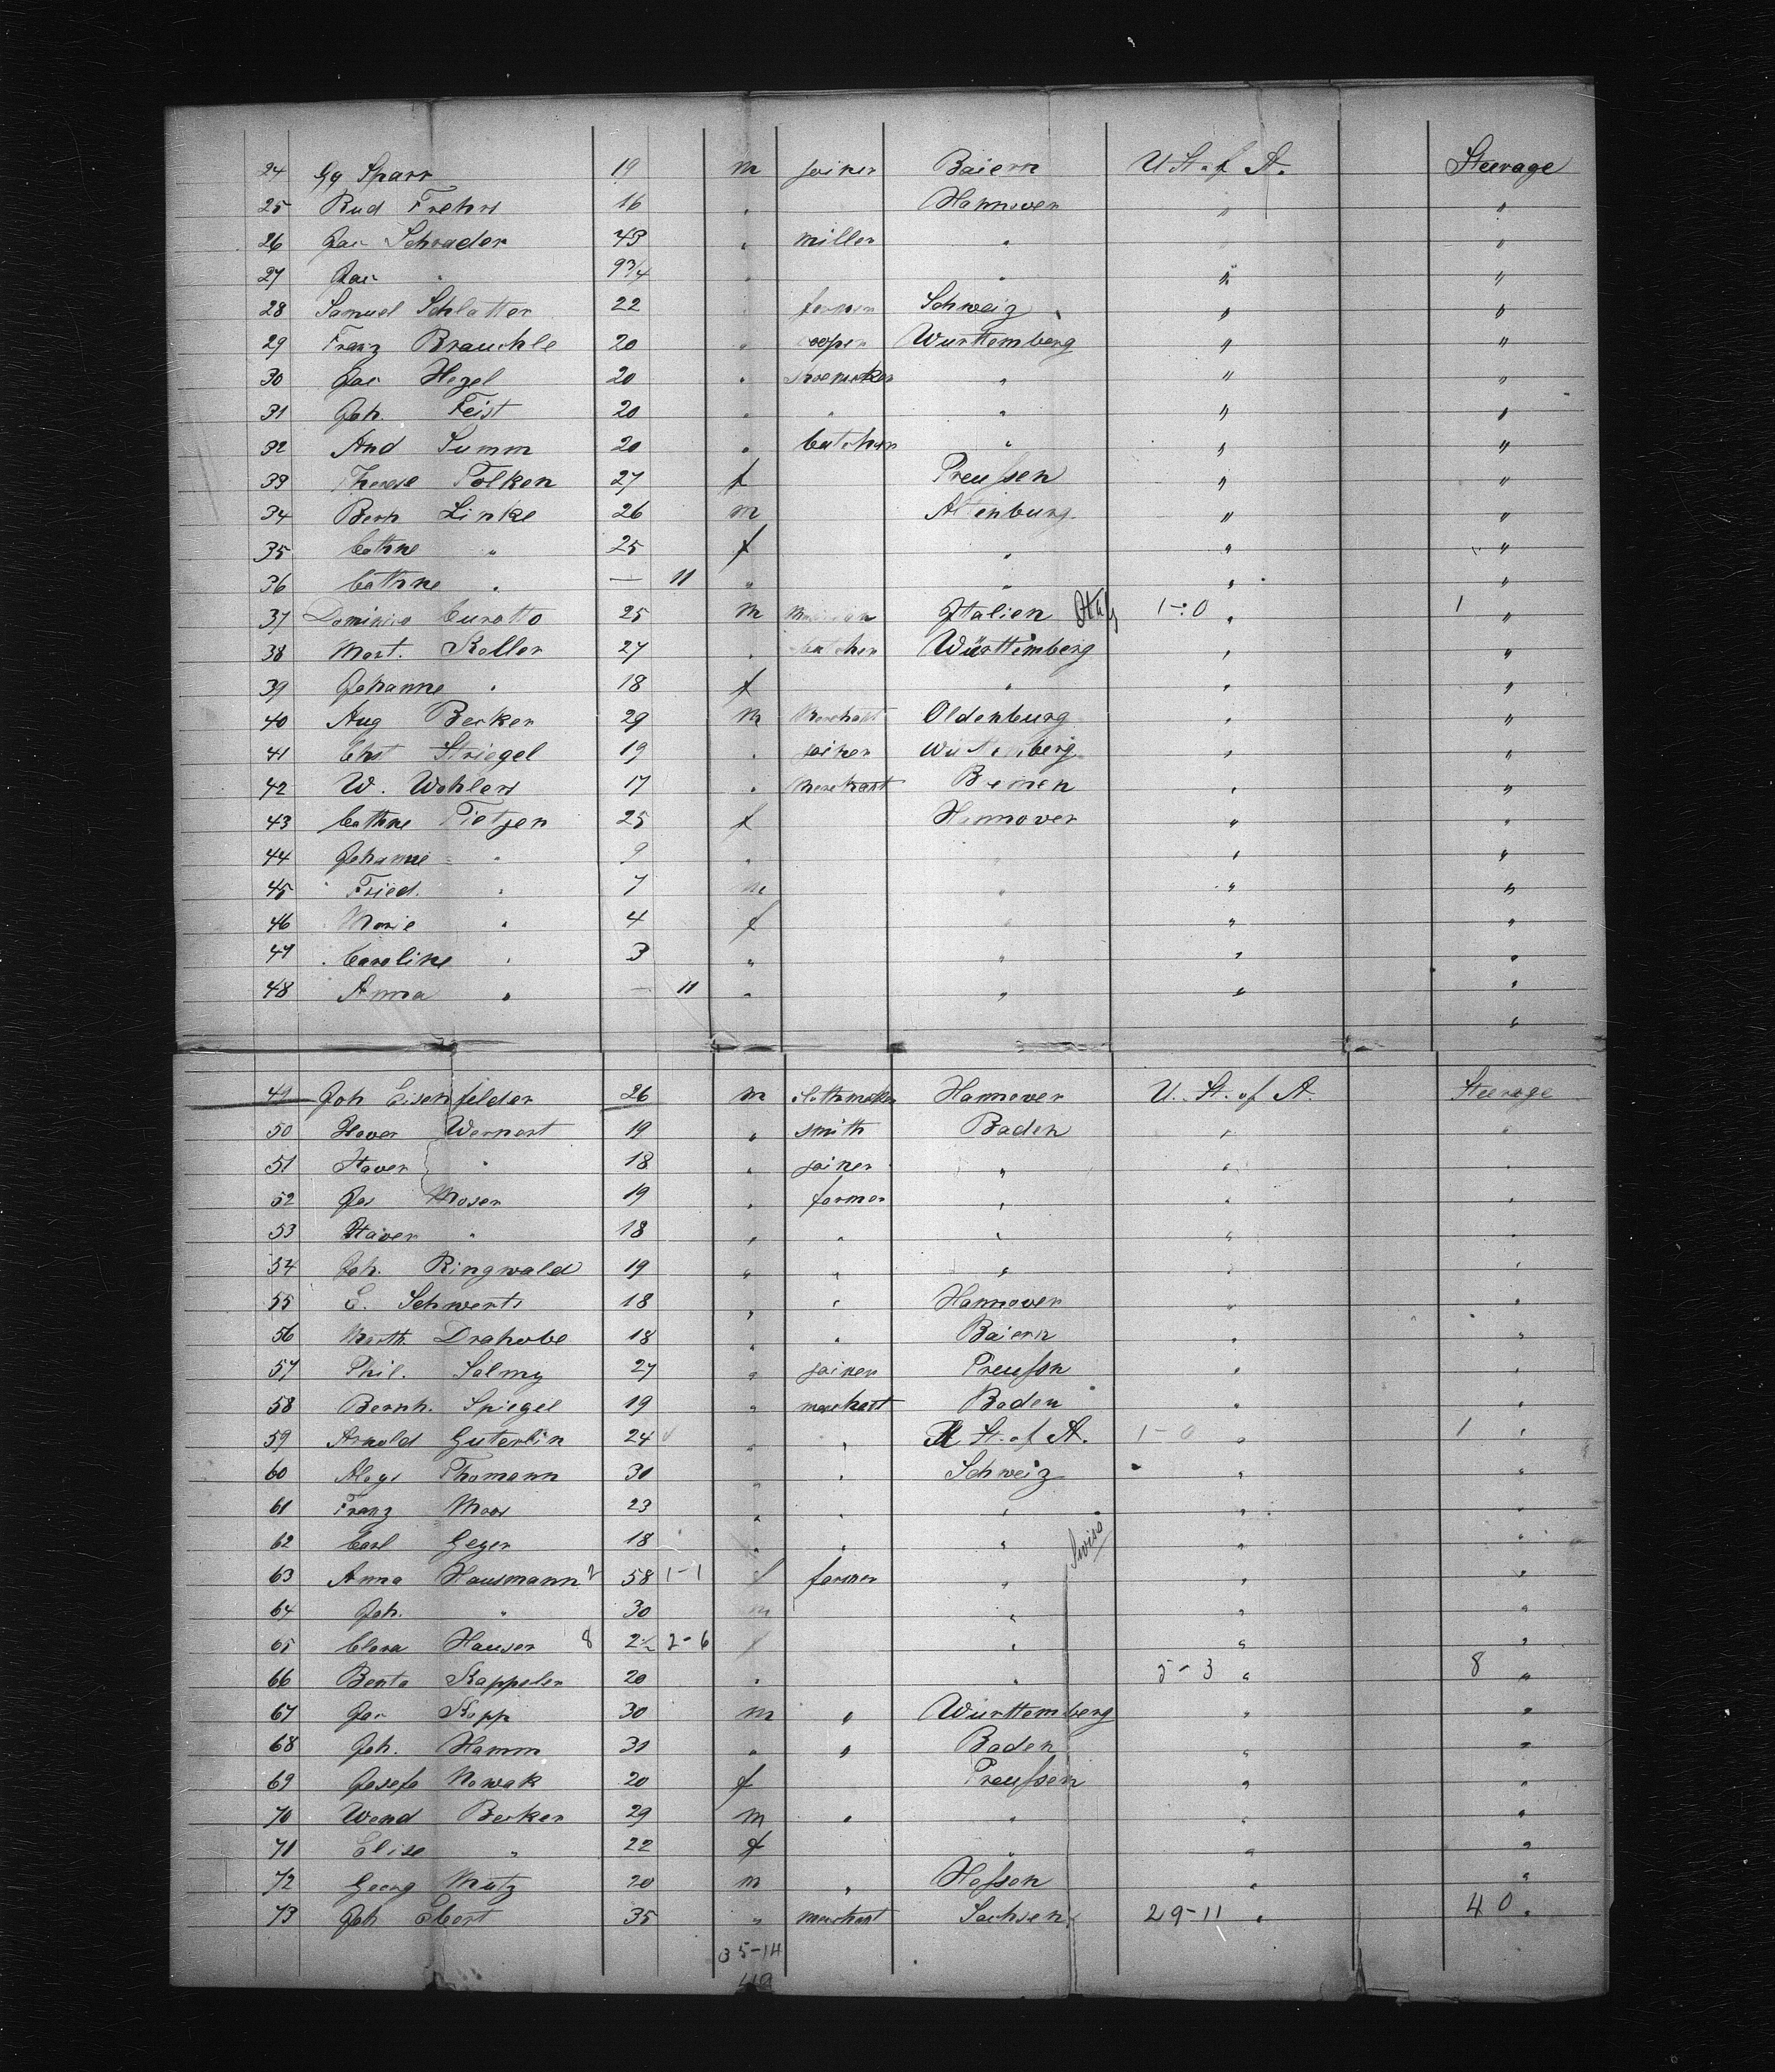 24 Gg Sparr 19 m joiner Baiern U St. of A. Steerage
25 Rud Frehrs 16 " Hannover " "
26 Jac Schrader 43 " miller " " "
27 Jac " 9 3/4 " " " "
28 Samuel Schlatter 22 " farmer Schweiz " "
29 Franz Brauchle 20 " cooper Wurttemberg " "
30 Jac Hezel 20 " shoemaker " " "
31 Joh. Feist 20 " " " " "
32 And Summ 20 " butcher " " "
33 Therese Tolken 27 f Preussen " "
34 Bern Linke 26 m Altenburg " "
35 Cathne " 25 f " " "
36 Cathne " — 11 " " " "
37 Dominico Curotto 25 m Italien Italy 1-0 " 1 "
38 Mart. Koller 27 " butcher Württemberg " "
39 Johanne " 18 f " " "
40 Aug Becker 29 m merchant Oldenburg " "
41 Chst Striegel 19 " joiner Württemberg " "
42 W. Wohlers 17 " merchant Bremen " "
43 Cathne Tietjen 25 f Hannover " "
44 Johanne " 9 " " " "
45 Fried. " 7 m " " "
46 Marie " 4 f " " "
47 Caroline " 3 " " " "
48 Anna " — 11 " " " "
"
49 Joh Eisenfelder 26 m clothmaker Hannover U. St. of A. Steerage
50 Xaver Wernert 19 " smith Baden " "
51 Xaver " 18 " joiner " " "
52 Jos Moser 19 " farmer " " "
53 Xaver " 18 " " " " "
54 Joh. Ringwald 19 " " " " "
55 E. Schwerts 18 " " Hannover " "
56 Marth Drahobe 18 " " Baiern " "
57 Phil. Salmy 27 " joiner Preussen " "
58 Bernh. Spiegel 19 " merchant Baden " "
59 Arnold Guterlin 24 " " U St. of A. 1-0 " 1 "
60 Aloys Thomann 30 " " Schweiz " "
61 Franz Moos 23 " " " " "
62 Carl Geyer 18 " " " Swiss " "
63 Anna Hausmann 2 58 1-1 f farmer " " "
64 Joh. " 30 m " " "
65 Clara Hauser 8 2 1/2 2-6 f " " "
66 Benta Kappeler 20 " " 5-3 " 8 "
67 Jac Kopp 30 m " Wurttemberg " "
68 Joh. Hamm 31 " " Baden " "
69 Josefa Nowak 20 f Preussen " "
70 Wend Becker 29 m " " " "
71 Elise " 22 f " " "
72 Georg Mutz 20 m " Hessen " "
73 Joh Ebert 35 " merchant Sachsen 29-11 " 40 "
35-14
49